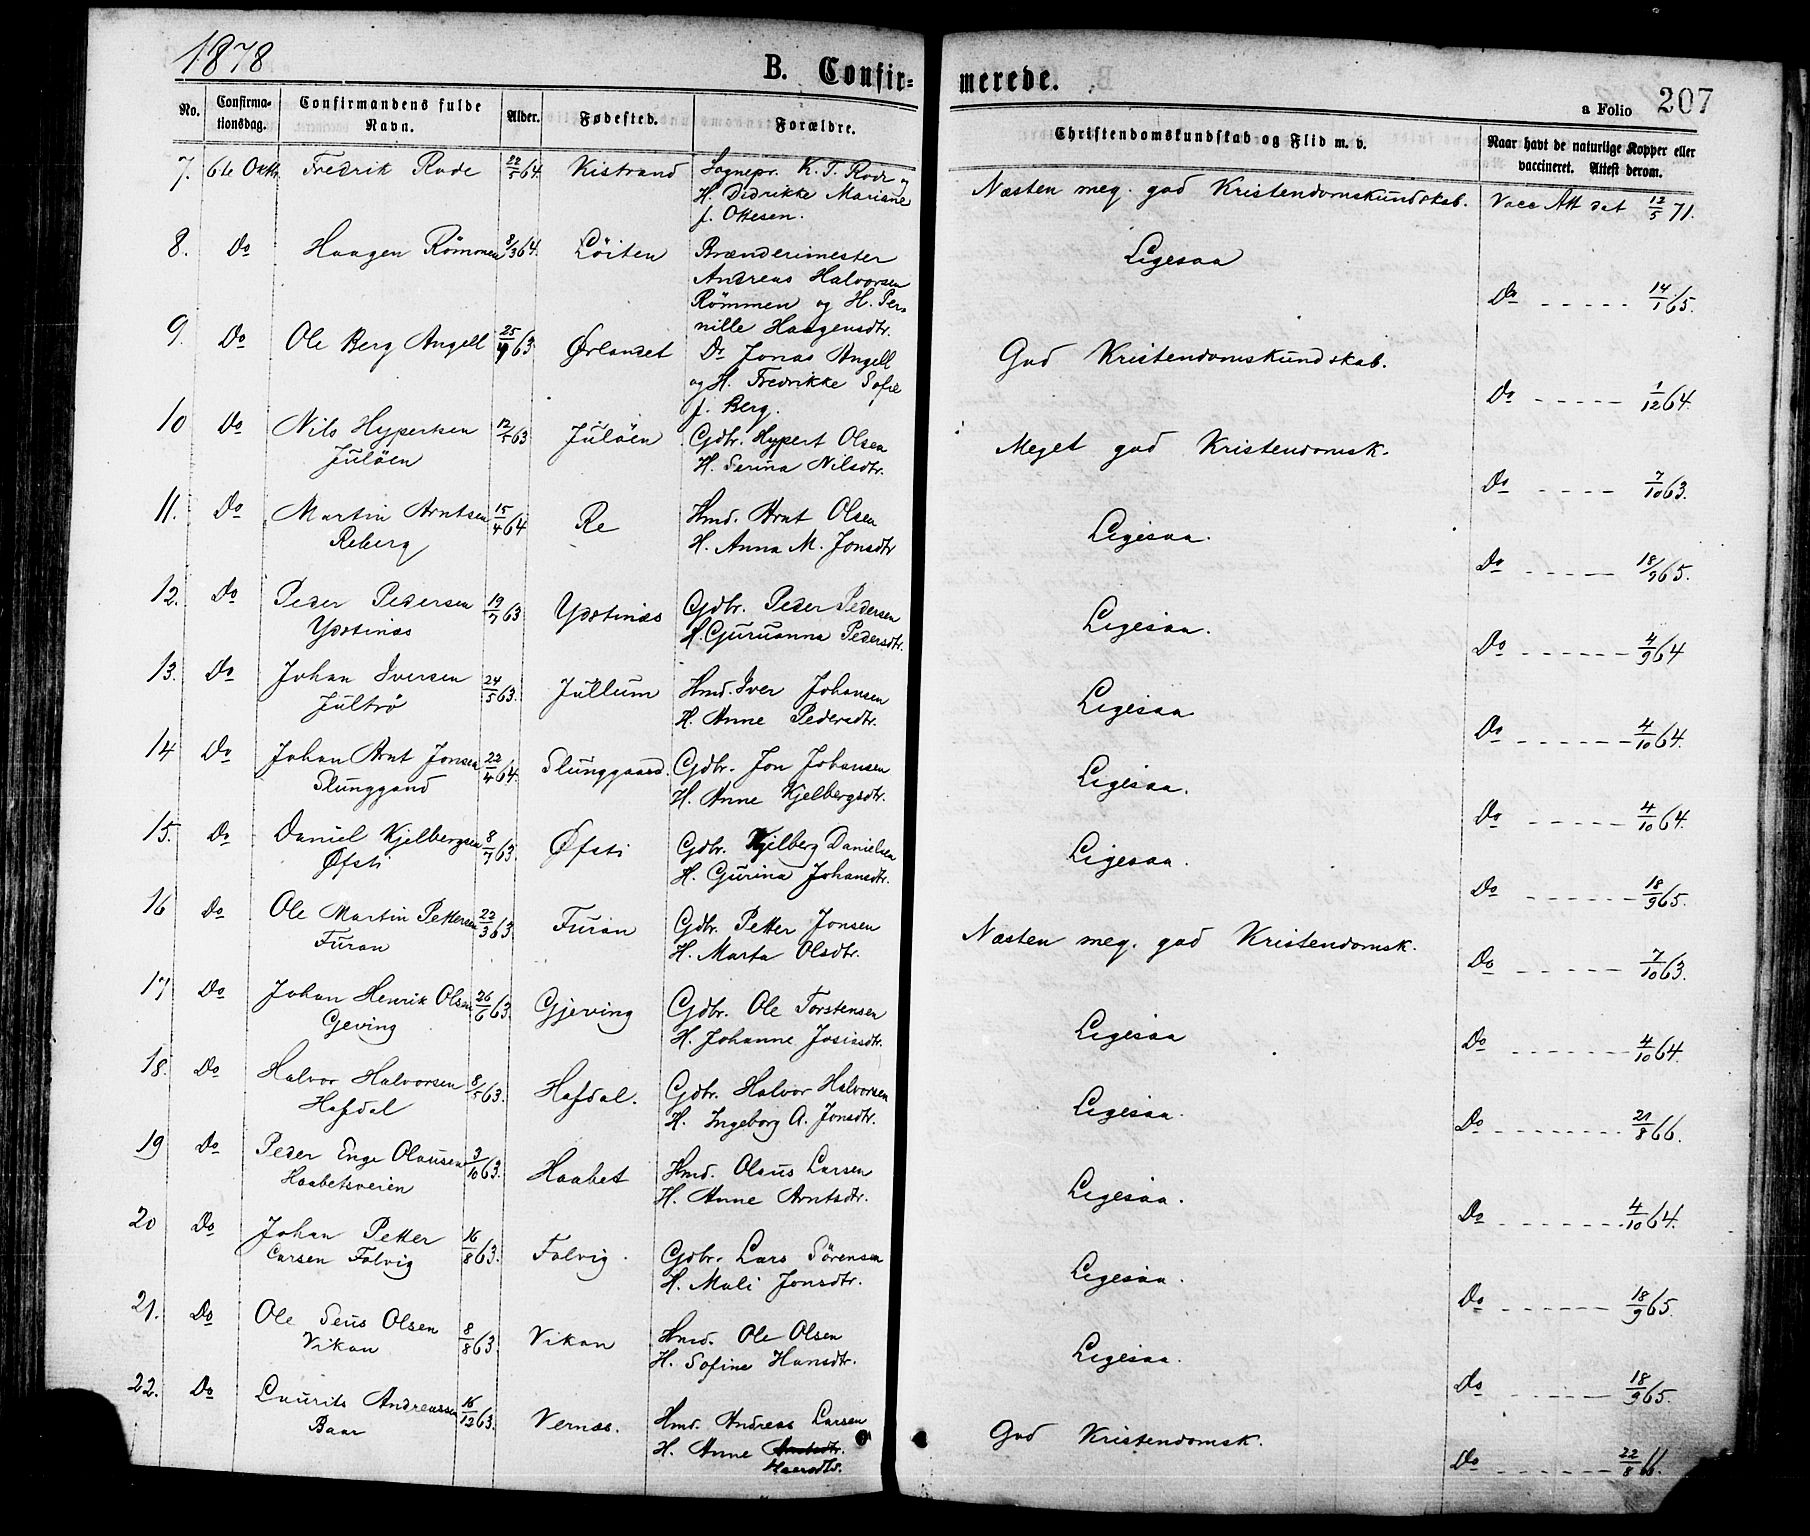 1878
B. Confir-
merede.
a Folio 207
No.
Confirma-
tionsdag.
Confirmandens fulde
Navn.
Alder.
Fødested.
Forældre.
Christendomskundskab og Flid m. v.
Naar havt de naturlige Kopper eller
vaccineret. Attest derom.
7. 6te Oktb. Fredrik Rode 22/5 64 Kistrand Sognepr. K. T. Rode og Næsten meg. god Kristendomskundskab. Vacc Att dat 12/5 71.
H. Didrikke Mariane
f. Ottesen.
8. Do Haagen Römmen 9/3 64. Löiten Brænderimester Ligesaa Do 14/1 65.
Andreas Halvorsen
Römmen og H. Per-
nille Haagensdtr.
9. Do Ole Berg Angell 25/9 63 Ørlandet Dr Jonas Angell God Kristendomskundskab. Do 1/12 64.
og H. Fredrikke Sofie
f. Berg.
10 Do Nils Hypertsen 12/5 63 Julöen Gdbr. Hypert Olsen Meget god Kristendomsk. Do 7/10 63.
Julöen H. Serina Nilsdtr.
11. Do Martin Arntsen 15/4 64 Re Hmd. Arnt Olsen Ligesaa. Do 18/9 65.
Reberg H. Anna M. Jonsdtr
12. Do Peder Pedersen 19/7 63 Ydstinæs Gdbr. Peder Pedersen Ligesaa. Do 4/9 64
Ydstinæs H. Guruanna Pedersdtr.
13. Do Johan Iversen 24/5 63. Jullum Hmd. Iver Johansen Ligesaa Do 4/10 64.
Jultrö H. Anne Pedersdtr.
14 Do Johan Arnt Jonsen 22/4 64. Slunggaard. Gdbr. Jon Johansen Ligesaa. Do 4/10 64.
Slunggaard H. Anne Kjelbergsdtr.
15. Do Daniel Kjelbergsen 8/7 63. Øfsti Gdbr. Kjelberg Danielsen Ligesaa. Do 18/9 65.
Øfsti H. Gurina Johansdtr.
16 Do Ole Martin Pettersen 22/3 63. Furan Gdbr. Petter Jonsen Næsten meg. god Kristendomsk. Do 7/10 63.
Furan H. Marta Olsdtr.
17 Do Johan Henrik Olsen 26/6 63. Gjeving Gdbr. Ole Torstensen Ligesaa Do 4/10 64.
Geving H. Johanne Josiasdtr.
18. Do Halvor Halvorsen 8/5 63. Hafdal. Gdbr. Halvor Halvorsen Ligesaa. Do 21/8 66.
Hafdal H. Ingeborg A. Jonsdtr.
19 Do Peder Enge Olausen 3/10 63. Haabet Hmd. Olaus Larsen Ligesaa. Do 4/10 64.
Haabetsveien H. Anne Arntsdtr.
20 Do Johan Petter 16/8 63. Folvig. Gdbr. Lars Sörensen Ligesaa. Do 18/9 65.
Larsen Folvig H. Mali Jonsdtr.
21. Do Ole Seus Olsen 8/8 63. Vikan Hmd. Ole Olsen Ligesaa. Do 18/9 65.
Vikan H. Sofine Hansdtr.
22. Do Laurits Andreassen 16/12 63. Vernæs. Hmd. Andreas Larsen God Kristendomsk. Do 22/8 66.
Baar H. Anne